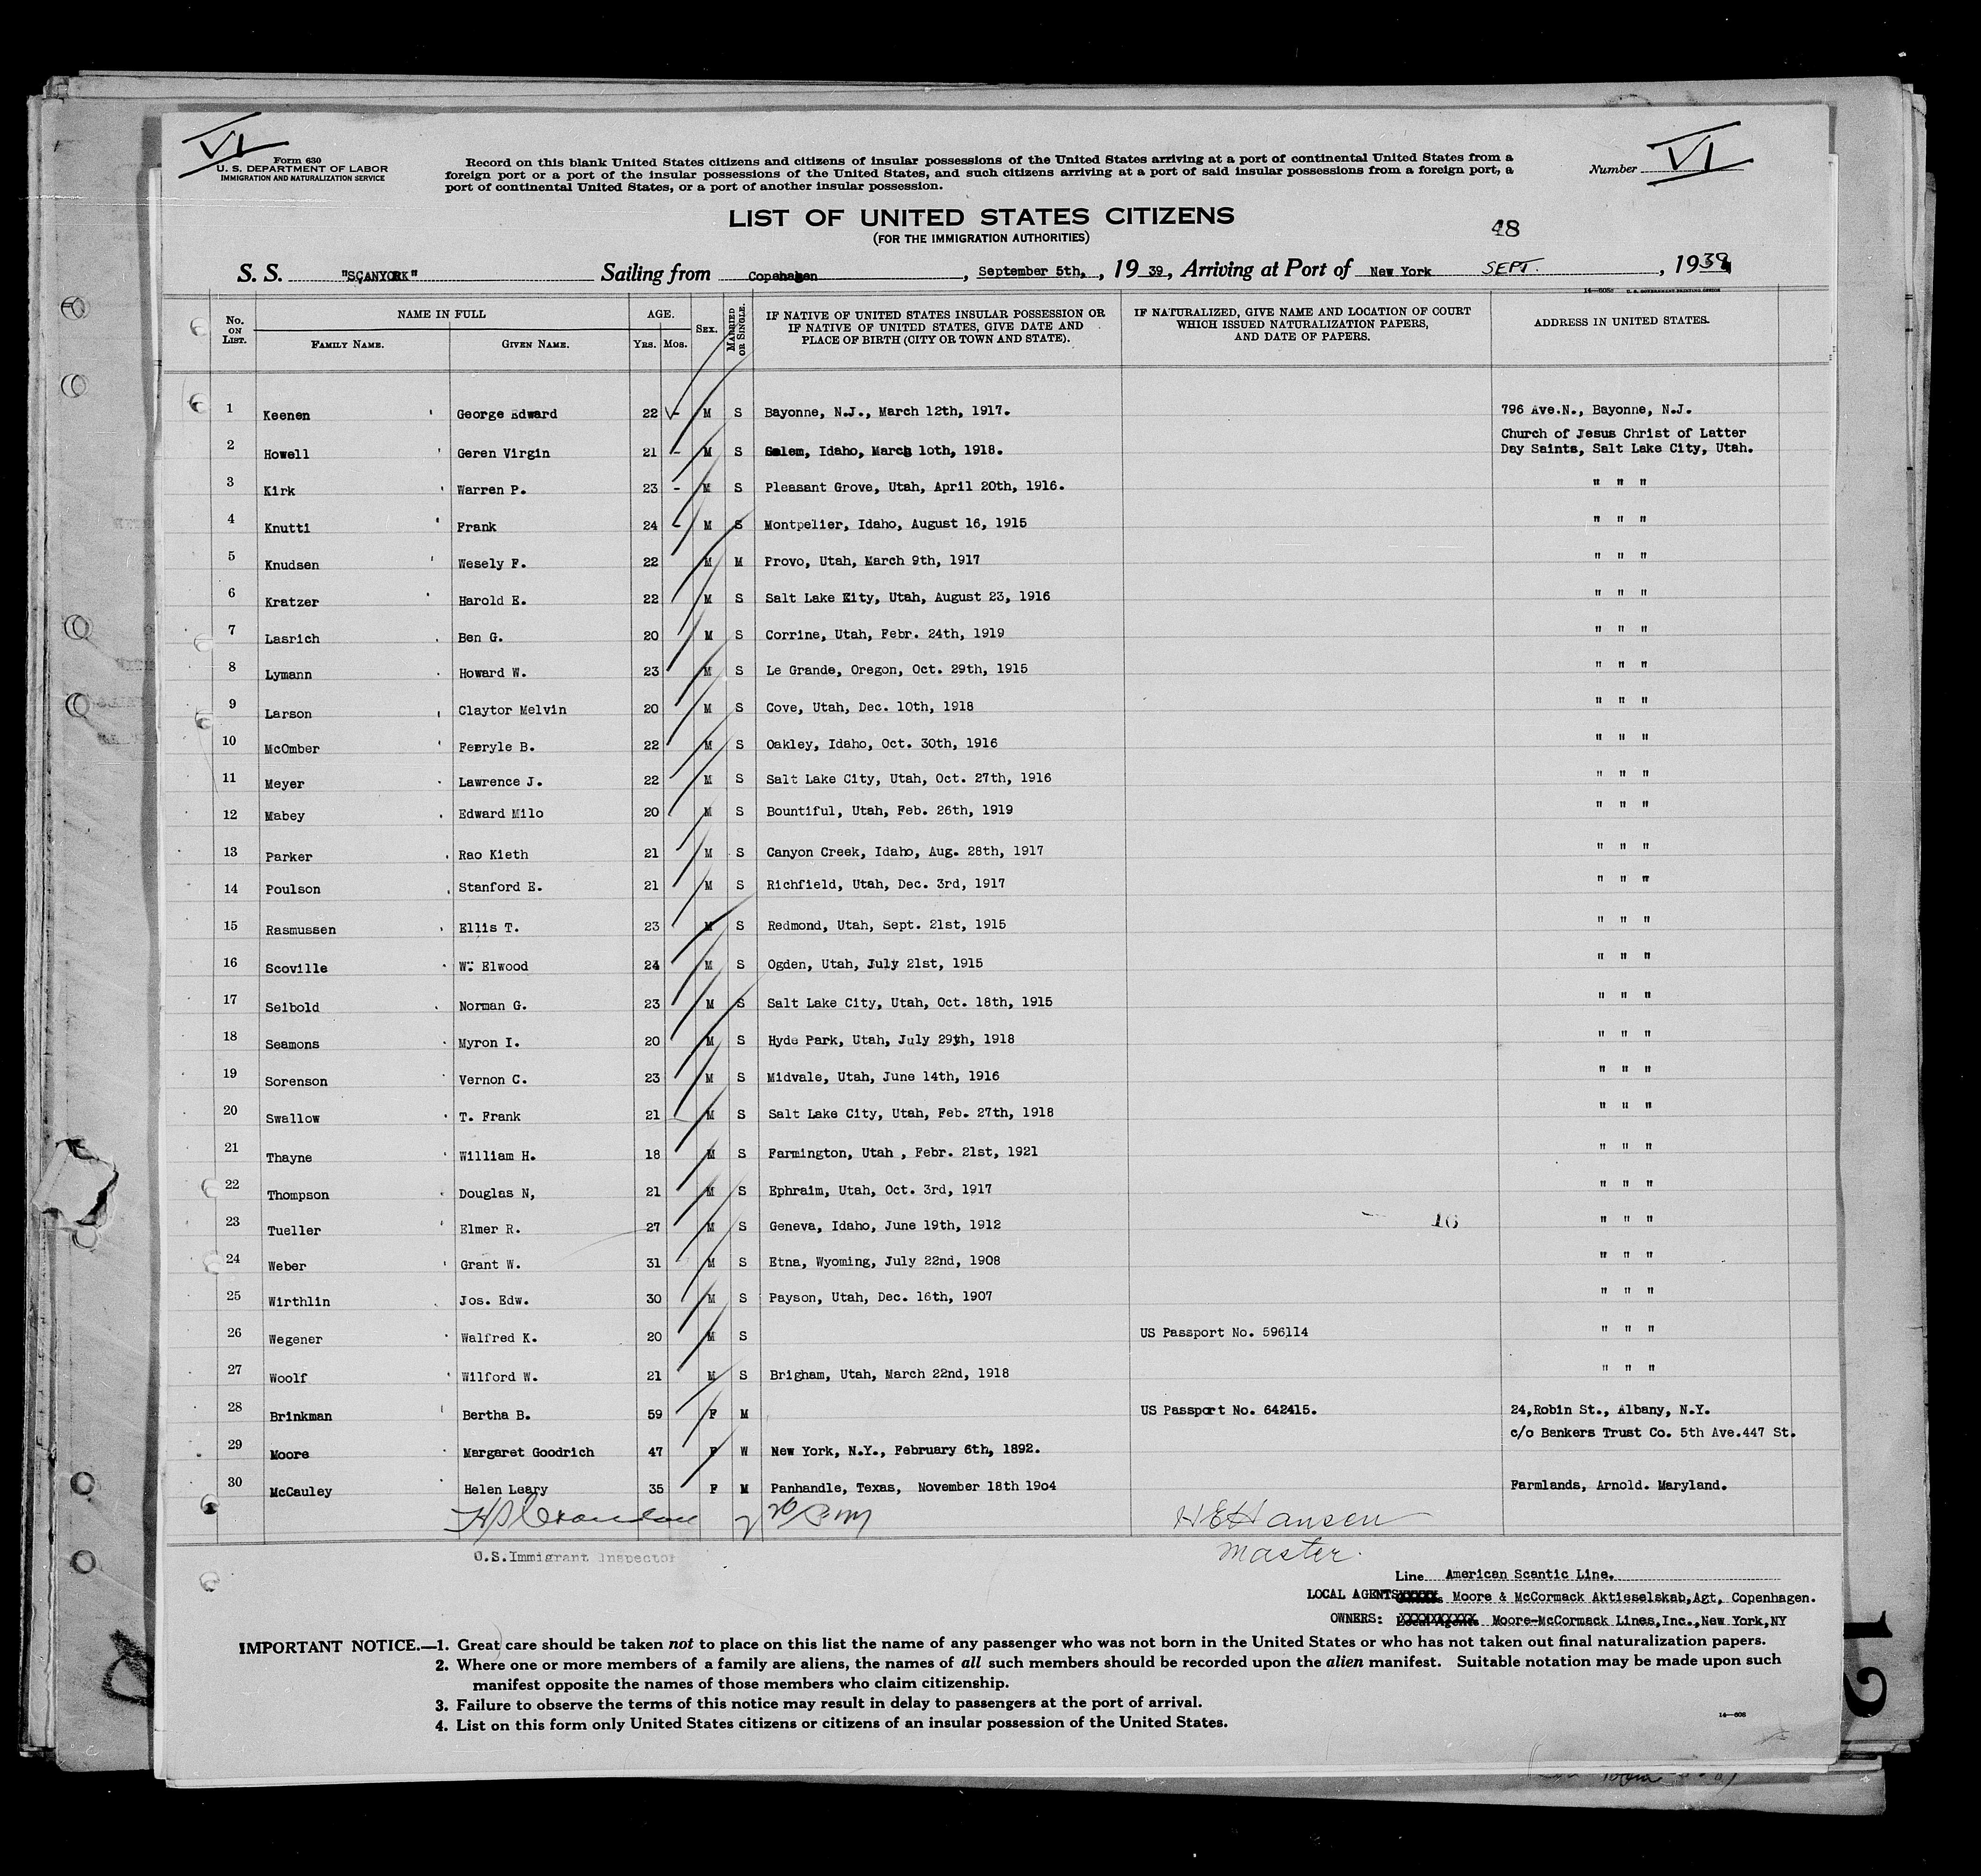 VI
Form 630
U. S. DEPARTMENT OF LABOR
IMMIGRATION AND NATURALIZATION SERVICE
Record on this blank United States citizens and citizens of insular possessions of the United States arriving at a port of continental United States from a
foreign port or a port of the insular possessions of the United States, and such citizens arriving at a port of said insular possessions from a foreign port, a
port of continental United States, or a port of another insular possession.
Number VI
LIST OF UNITED STATES CITIZENS
(FOR THE IMMIGRATION AUTHORITIES)
48
S. S. "SCANYORK" Sailing from Copenhagen, September 5th, , 19 39, Arriving at Port of New York SEPT. , 1939
No. ON LIST. NAME IN FULL FAMILY NAME. GIVEN NAME. AGE. YRS. MOS. SEX. MARRIED OR SINGLE. IF NATIVE OF UNITED STATES INSULAR POSSESSION OR IF NATIVE OF UNITED STATES, GIVE DATE AND PLACE OF BIRTH (CITY OR TOWN AND STATE). IF NATURALIZED, GIVE NAME AND LOCATION OF COURT WHICH ISSUED NATURALIZATION PAPERS, AND DATE OF PAPERS. ADDRESS IN UNITED STATES.
1 Keenen George Edward 22 - M S Bayonne, N.J., March 12th, 1917. 796 Ave.N., Bayonne, N.J.
Church of Jesus Christ of Latter
2 Howell Geren Virgin 21 - M S Salem, Idaho, March 1oth, 1918. Day Saints, Salt Lake City, Utah.
3 Kirk Warren P. 23 - M S Pleasant Grove, Utah, April 20th, 1916. " " "
4 Knutti Frank 24 - M S Montpelier, Idaho, August 16, 1915 " " "
5 Knudsen Wesely F. 22 M M Provo, Utah, March 9th, 1917 " " "
6 Kratzer Harold E. 22 M S Salt Lake Eity, Utah, August 23, 1916 " " "
7 Lasrich Ben G. 20 M S Corrine, Utah, Febr. 24th, 1919 " " "
8 Lymann Howard W. 23 M S Le Grande, Oregon, Oct. 29th, 1915 " " "
9 Larson Claytor Melvin 20 M S Cove, Utah, Dec. 10th, 1918 " " "
10 McOmber Ferryle B. 22 M S Oakley, Idaho, Oct. 30th, 1916 " " "
11 Meyer Lawrence J. 22 M S Salt Lake City, Utah, Oct. 27th, 1916 " " "
12 Mabey Edward Milo 20 M S Bountiful, Utah, Feb. 26th, 1919 " " "
13 Parker Rao Kieth 21 M S Canyon Creek, Idaho, Aug. 28th, 1917 " " "
14 Poulson Stanford E. 21 M S Richfield, Utah, Dec. 3rd, 1917 " " "
15 Rasmussen Ellis T. 23 M S Redmond, Utah, Sept. 21st, 1915 " " "
16 Scoville W. Elwood 24 M S Ogden, Utah, July 21st, 1915 " " "
17 Seibold Norman G. 23 M S Salt Lake City, Utah, Oct. 18th, 1915 " " "
18 Seamons Myron I. 20 M S Hyde Park, Utah, July 29th, 1918 " " "
19 Sorenson Vernon C. 23 M S Midvale, Utah, June 14th, 1916 " " "
20 Swallow T. Frank 21 M S Salt Lake City, Utah, Feb. 27th, 1918 " " "
21 Thayne William H. 18 M S Farmington, Utah , Febr. 21st, 1921 " " "
22 Thompson Douglas N, 21 M S Ephraim, Utah, Oct. 3rd, 1917 " " "
23 Tueller Elmer R. 27 M S Geneva, Idaho, June 19th, 1912 16 " " "
24 Weber Grant W. 31 M S Etna, Wyoming, July 22nd, 1908 " " "
25 Wirthlin Jos. Edw. 30 M S Payson, Utah, Dec. 16th, 1907 " " "
26 Wegener Walfred K. 20 M S US Passport No. 596114 " " "
27 Woolf Wilford W. 21 M S Brigham, Utah, March 22nd, 1918 " " "
28 Brinkman Bertha B. 59 F M US Passport No. 642415. 24,Robin St., Albany, N.Y.
c/o Bankers Trust Co. 5th Ave.447 St.
29 Moore Margaret Goodrich 47 F W New York, N.Y., February 6th, 1892.
30 McCauley Helen Leary 35 F M Panhandle, Texas, November 18th 19o4 Farmlands, Arnold. Maryland.
H E Hansen
Master.
U.S. Immigrant Inspector
Line American Scantic Line.
LOCAL AGENTS Moore & McCormack Aktieselskab,Agt, Copenhagen.
OWNERS: Moore-McCormack Lines,Inc.,New York,NY
IMPORTANT NOTICE.—1. Great care should be taken not to place on this list the name of any passenger who was not born in the United States or who has not taken out final naturalization papers.
2. Where one or more members of a family are aliens, the names of all such members should be recorded upon the alien manifest. Suitable notation may be made upon such
manifest opposite the names of those members who claim citizenship.
3. Failure to observe the terms of this notice may result in delay to passengers at the port of arrival.
4. List on this form only United States citizens or citizens of an insular possession of the United States.
14—608
12